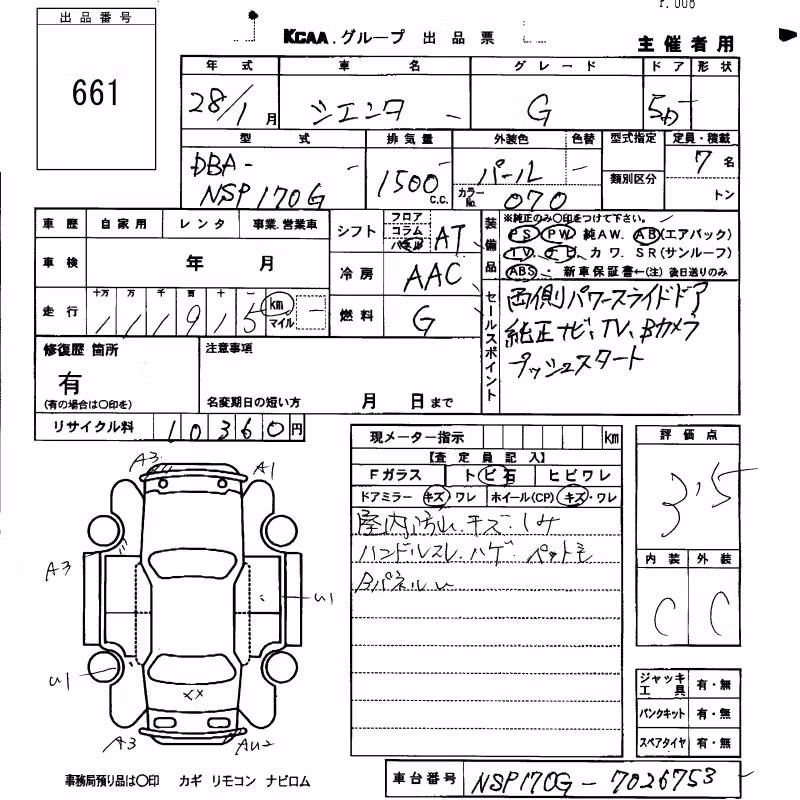 r. 008
出品番号
661
KCAA.グループ 出品票
主催者用
年式 車名 グレード ドア 形状
28/1月 シエンタ - G 5D -
型式 排気量 外装色 色替 型式指定 定員・積載
DBA - NSP170G
1500 C.C.
パール -
カラーNo. 070
類別区分
7名
トン
車歴 自家用 レンタ 事業.営業車
車検 年 月
走行 十万 万 千 百 十 一
/ / 1 9 1 5 km マイル -
シフト フロア コラム パネル AT
冷房 AAC
燃料 G
装備品
※純正のみ〇印をつけて下さい。
PS PW 純AW. AB(エアバック)
TV. ナビ. カワ. SR(サンルーフ)
ABS・ 新車保証書←(注)後日送りのみ
セールスポイント
両側パワースライドドア
純正ナビ、TV、Bカメラ
プッシュスタート
修復歴 箇所
有
(有の場合は〇印を)
注意事項
名変期日の短い方 月 日まで
リサイクル料 10360円
現メーター指示 km
【査定員記入】
Fガラス トビ石 ヒビワレ
ドアミラー キズ・ワレ ホイール(CP) キズ・ワレ
室内汚れ.キズ.シミ
ハンドルスレ.ハゲ. ペット毛
Bパネルu
評価点
3.5
内装 外装
C C
A3 A1
A3
U1
U1
XX
A3 AU2
ジャッキ工具 有・無
パンクキット 有・無
スペアタイヤ 有・無
事務局預り品は〇印 カギ リモコン ナビロム
車台番号 NSP170G - 7026753